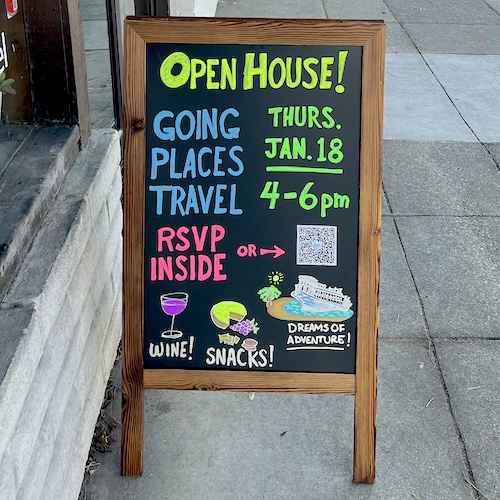 OPEN HOUSE!
GOING
PLACES
TRAVEL
THURS.
JAN. 18
4-6pm
RSVP
INSIDE
OR →
WINE!
SNACKS!
DREAMS OF
ADVENTURE!